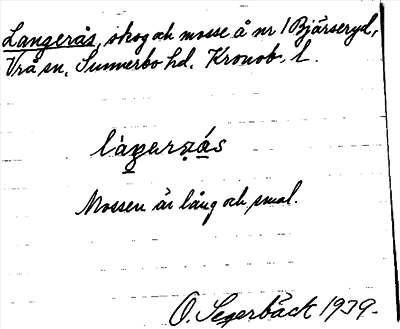 Langerås, skog och mosse å nr 1 Bjärseryd,
Vrå sn, Sunnerbo hd. Kronob. l.
Mossen är lång och smal.
O. Segerbäck 1939.